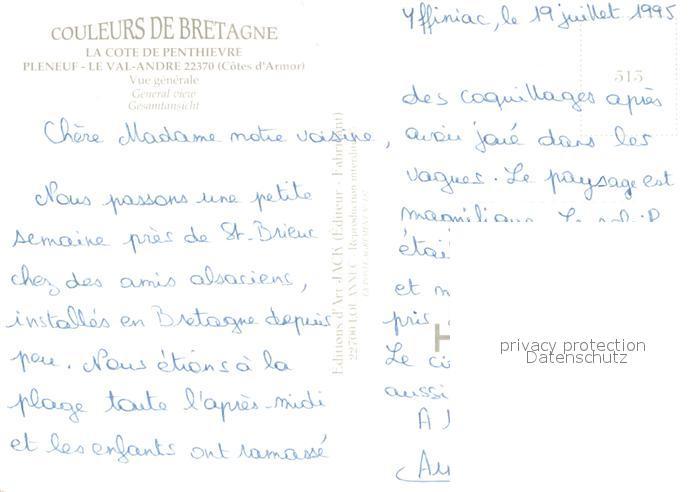 COULEURS DE BRETAGNE
LA COTE DE PENTHIEVRE
PLENEUF - LE VAL-ANDRE 22370 (Côtes d'Armor)
Vue générale
General view
Gesamtansicht
Chère Madame notre voisine,
Nous passons une petite
semaine près de St.Brieuc
chez des amis alsaciens,
installés en Bretagne depuis
peu. Nous étions à la
plage toute l'après-midi
et les enfants ont ramassé
Editions d'Art JACK (Éditeur - Fabricant)
22700 LOUANNEC - Reproduction interdite
Yffiniac, le 19 juillet 1995
513
des coquillages après
avoir joué dans les
vagues. Le paysage est
magnifique. Le
étai
et
pris
Le
aussi
A
privacy protection
Datenschutz